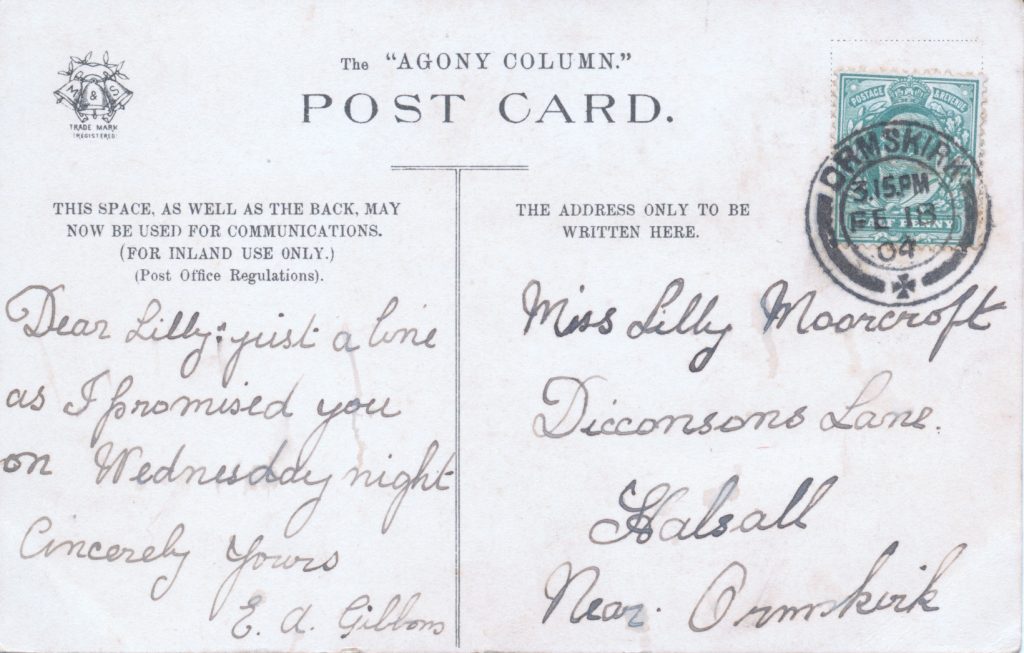 The "AGONY COLUMN."
POST CARD.
M & S
TRADE MARK
REGISTERED
POSTAGE & REVENUE
ORMSKIRK
3.15.PM
FE 18
04
HALF PENNY
THIS SPACE, AS WELL AS THE BACK, MAY
NOW BE USED FOR COMMUNICATIONS.
(FOR INLAND USE ONLY.)
(Post Office Regulations).
Dear Lilly: just a line
as I promised you
on Wednesday night
Sincerely Yours
E. A. Gibbons
THE ADDRESS ONLY TO BE
WRITTEN HERE.
Miss Lilly Moorcroft
Dicconsons Lane.
Halsall
Near. Ormskirk